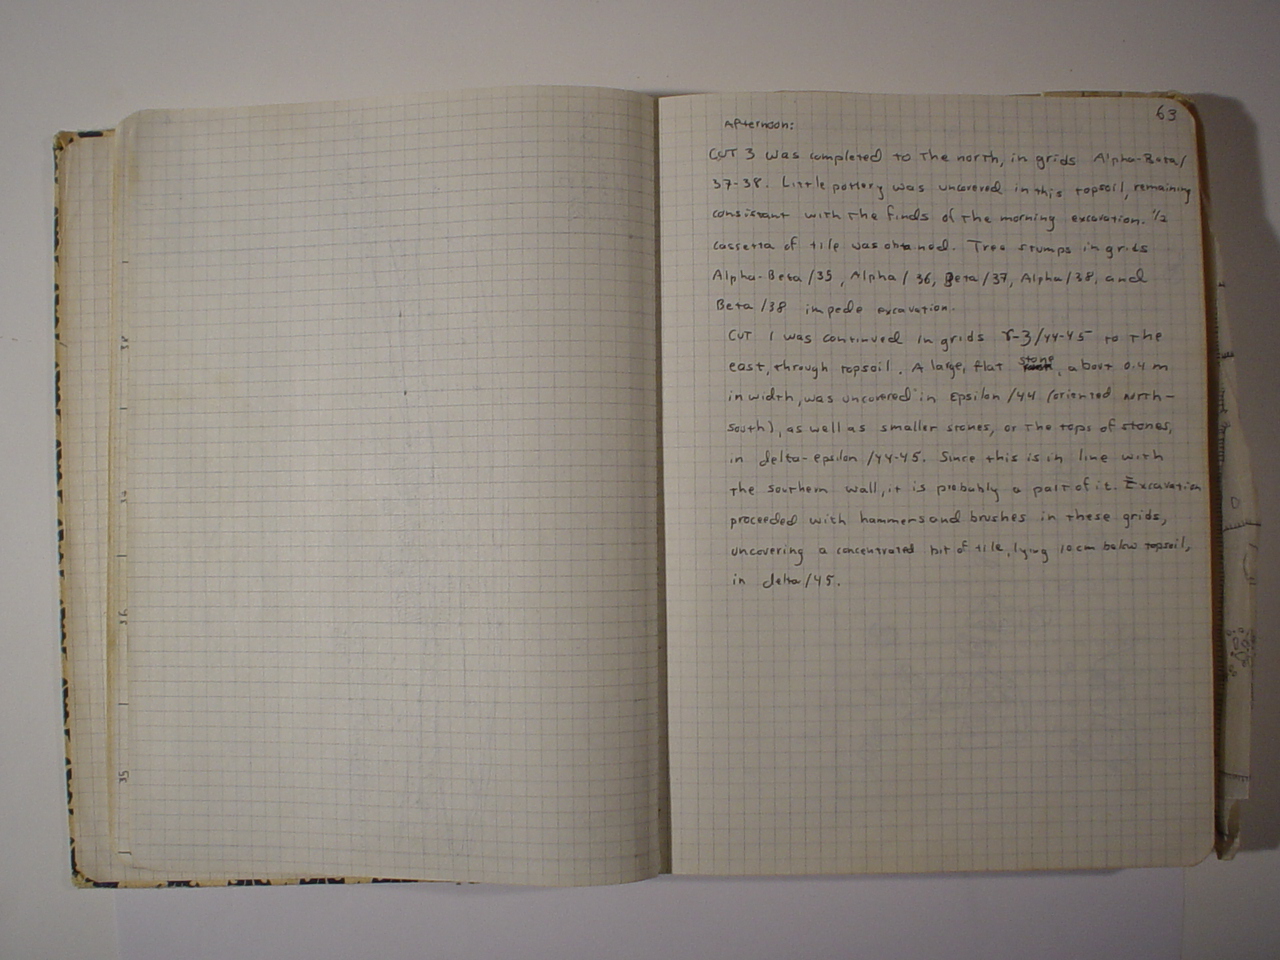 63
Afternoon:
CUT 3 was completed to the north, in grids Alpha-Beta/
37-38. Little pottery was uncovered in this topsoil, remaining
consistant with the finds of the morning excavation. 1/2
cassetta of tile was obtained. Tree stumps in grids
Alpha-Beta/35, Alpha/36, Beta/37, Alpha/38, and
Beta/38 impede excavation.
CUT 1 was continued in grids γ-3/44-45 to the
east, through topsoil. A large, flat stone, about 0.4 m
in width, was uncovered in Epsilon/44 (oriented north-
south), as well as smaller stones, or the tops of stones,
in delta-epsilon/44-45. Since this is in line with
the southern wall, it is probably a part of it. Excavation
proceeded with hammers and brushes in these grids,
uncovering a concentrated bit of tile, lying 10 cm below topsoil,
in delta/45.
35